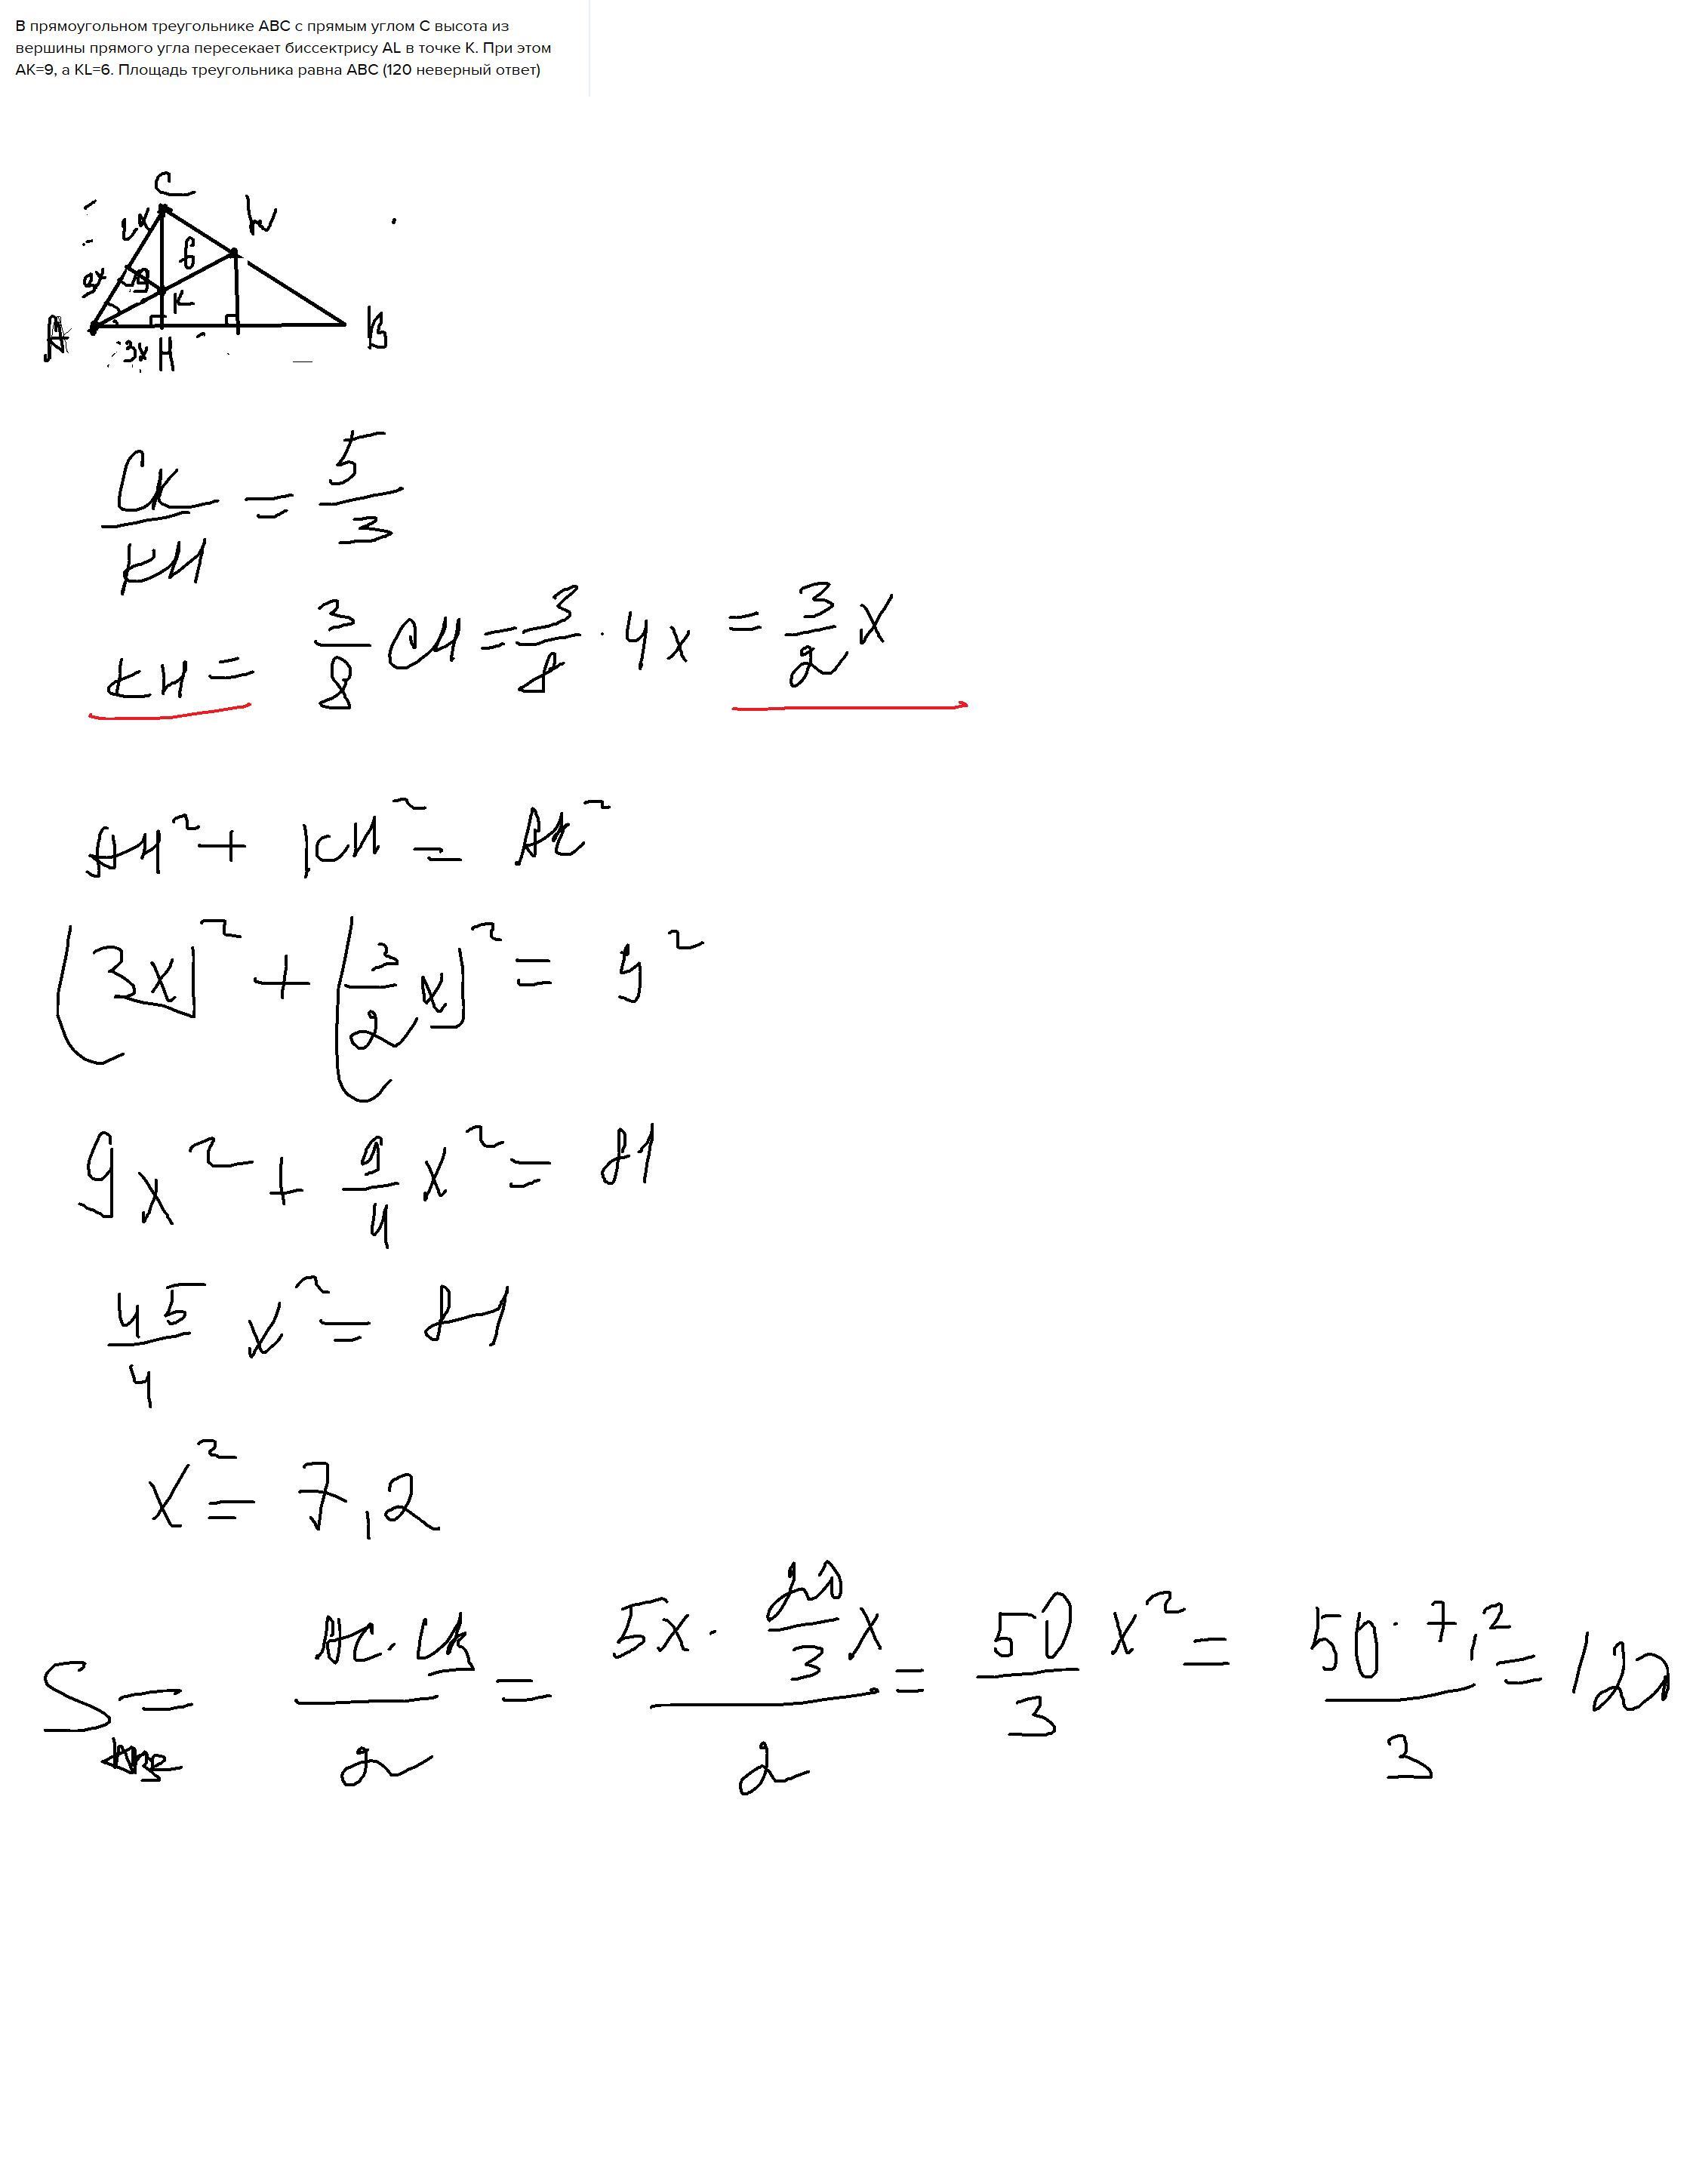 В прямоугольном треугольнике ABC с прямым углом C высота из
вершины прямого угла пересекает биссектрису AL в точке K. При этом
AK=9, а KL=6. Площадь треугольника равна ABC (120 неверный ответ)
C
2x
W
6
3x
9
K
A
B
3x H
CK/KH = 5/3
KH = 3/8 CH = 3/8 · 4x = 3/2 x
AH² + KH² = AK²
(3x)² + (3/2 x)² = 9²
9x² + 9/4 x² = 81
45/4 x² = 81
x² = 7,2
S = AC · CB / 2 = 5x · 20/3 x / 2 = 50/3 x² = 50 · 7,2 / 3 = 120